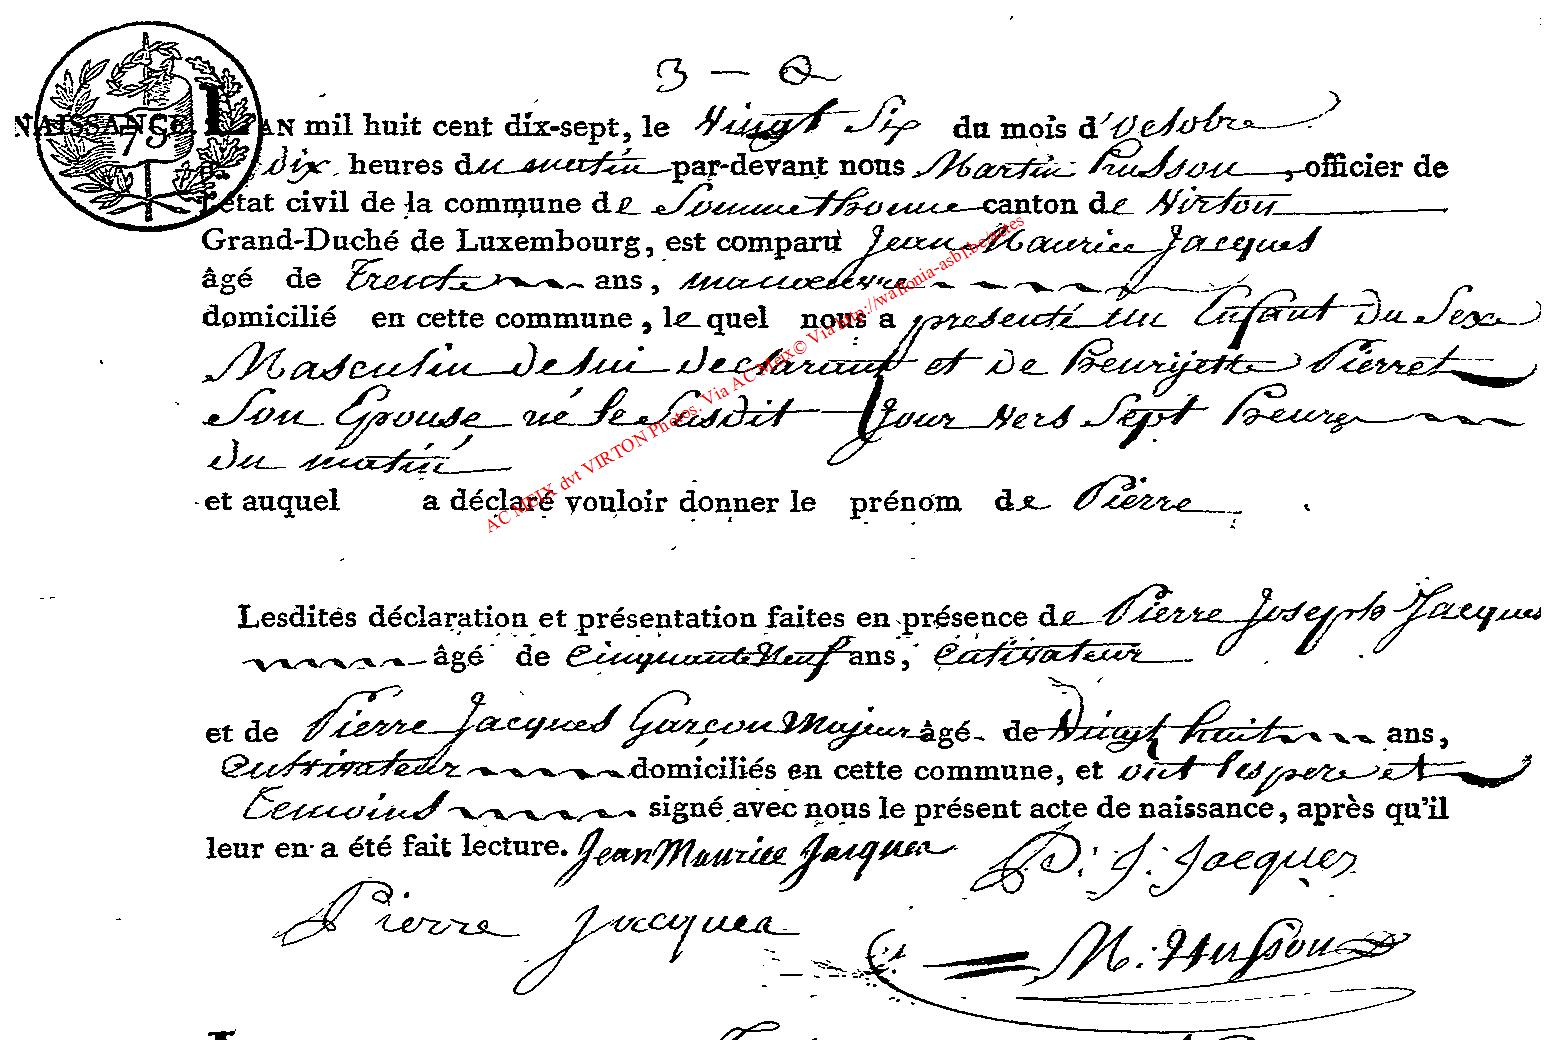 3 - 
NAISSANCE. L'AN mil huit cent dix-sept, le Vingt Six du mois d'octobre
75
à dix heures du matin par-devant nous Martin husson, officier de
l'état civil de la commune de Sommethonne canton de Virton
Grand-Duché de Luxembourg, est comparu Jean Maurice Jacques
âgé de trente ans, manoeuvre
domicilié en cette commune, le quel nous a presenté un Enfant du Sexe
Masculin de lui declarant et de henrijette Pierret
Son Epouse né le Susdit Jour vers Sept heures
du matin
et auquel a déclaré vouloir donner le prénom de Pierre
Lesdites déclaration et présentation faites en présence de Pierre Joseph Jacques
âgé de Cinquante Neuf ans, Cutivateur
et de Pierre Jacques Garçon Majeur âgé de Vingt huit ans,
Cutivateur domiciliés en cette commune, et ont les pere et
temoins signé avec nous le présent acte de naissance, après qu'il
leur en a été fait lecture. Jean Maurice Jacques P: J: Jacques
Pierre Jacques
M: Husson
AC MEIX dvt VIRTON Photos. Via AC Meix© Via http://wallonia-asbl.be/sites